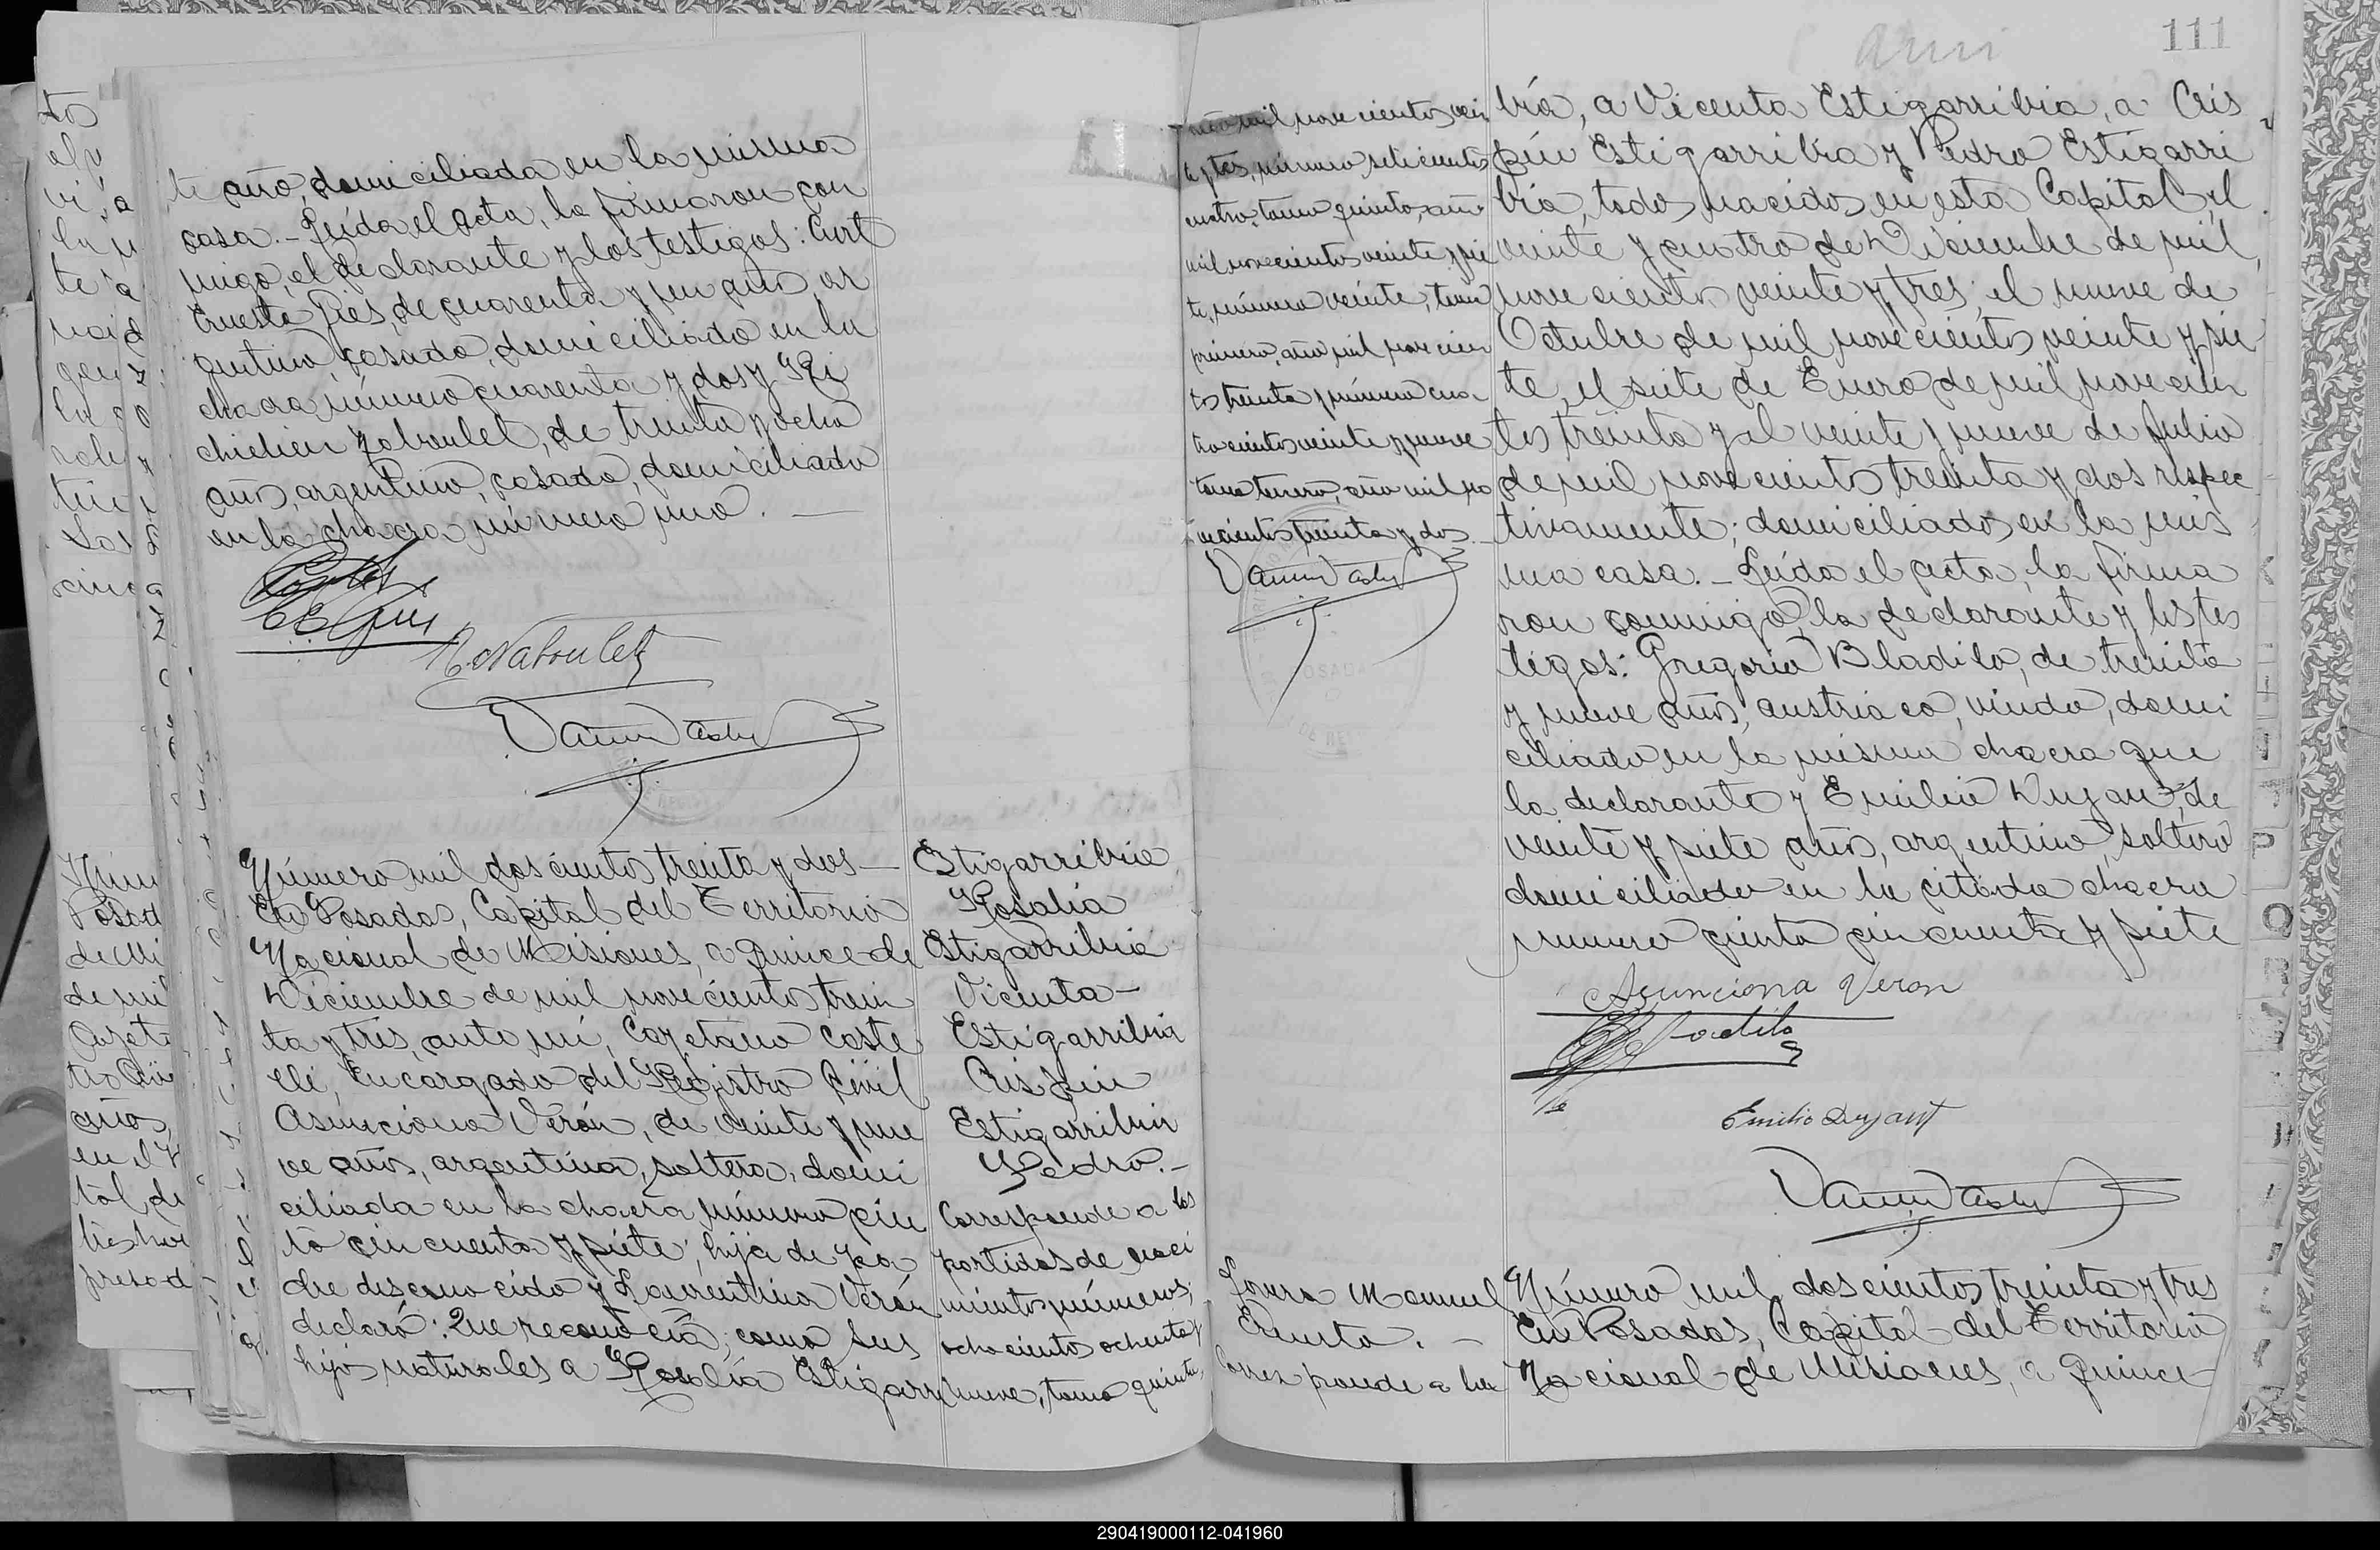 te año, domiciliada en la misma
casa.- Leída el acta, la firmaron con
migo, el declarante y los testigos: Curt
Ernesto Pies, de cuarenta y un años, ar
gentino, casado, domiciliado en la
chacra número cuarenta y dos y
de treinta y ocho
años, argentino, casado, domiciliado
en la chacra número una.
Número mil doscientos treinta y dos
En Posadas, Capital del Territorio
Nacional de Misiones, a quince de
Diciembre de mil novecientos trein
ta y tres, ante mí, Cayetano Caste
lli, Encargado del Registro Civil
Asunciona Verón, de veinte y nue
ve años, argentina, soltera, domi
ciliada en la chacra número cien
to cincuenta y siete; hija de pa
dre desconocido y Laurentina Verón
declaró: Que reconocía, como sus
hijos naturales a Rosalía Estigarri
Estigarribia
Rosalía
Estigarribia
Vicenta-
Estigarribia
Crispin
Estigarribia
Pedro.-
Corresponde a las
partidas de naci
mientos números;
ochocientos ochenta y
nueve, tomo quinto,
111
año mil novecientos vein
te y tres, número setecientos
cuatro, tomo quinto, año
mil novecientos veinte y sie
te, número veinte, tomo
primero, año mil novecien
tos treinta y número cua-
trocientos veinte y nueve
tomo tercero, año mil no
vecientos treinta y dos.-
bia, a Vicenta Estigarribia, a Cris
pín Estigarribia y Pedro Estigarri
bia, todos nacidos en esta Capital, el
veinte y cuatro de Diciembre de mil
novecientos veinte y tres; el nueve de
Octubre de mil novecientos veinte y sie
te, el siete de Enero de mil novecien
tos treinta y el veinte y nueve de Julio
de mil novecientos treinta y dos respec
tivamente; domiciliados en la mis
ma casa.- Leída el acta, la firma
ron conmigo, la declarante y los tes
tigos: Gregorio Bladilo, de treinta
y nueve años, austriaco, viudo, domi
ciliado en la misma chacra que
la declarante y Emilio Dujaut, de
veinte y siete años, argentino, soltero
domiciliado en la citada chacra
número ciento cincuenta y siete
Asunciona Veron
Emilio Dujaut
Manuel
corresponde a la
Número mil doscientos treinta y tres
En Posadas, Capital del Territorio
Nacional de Misiones, a quince
290419000112-041960